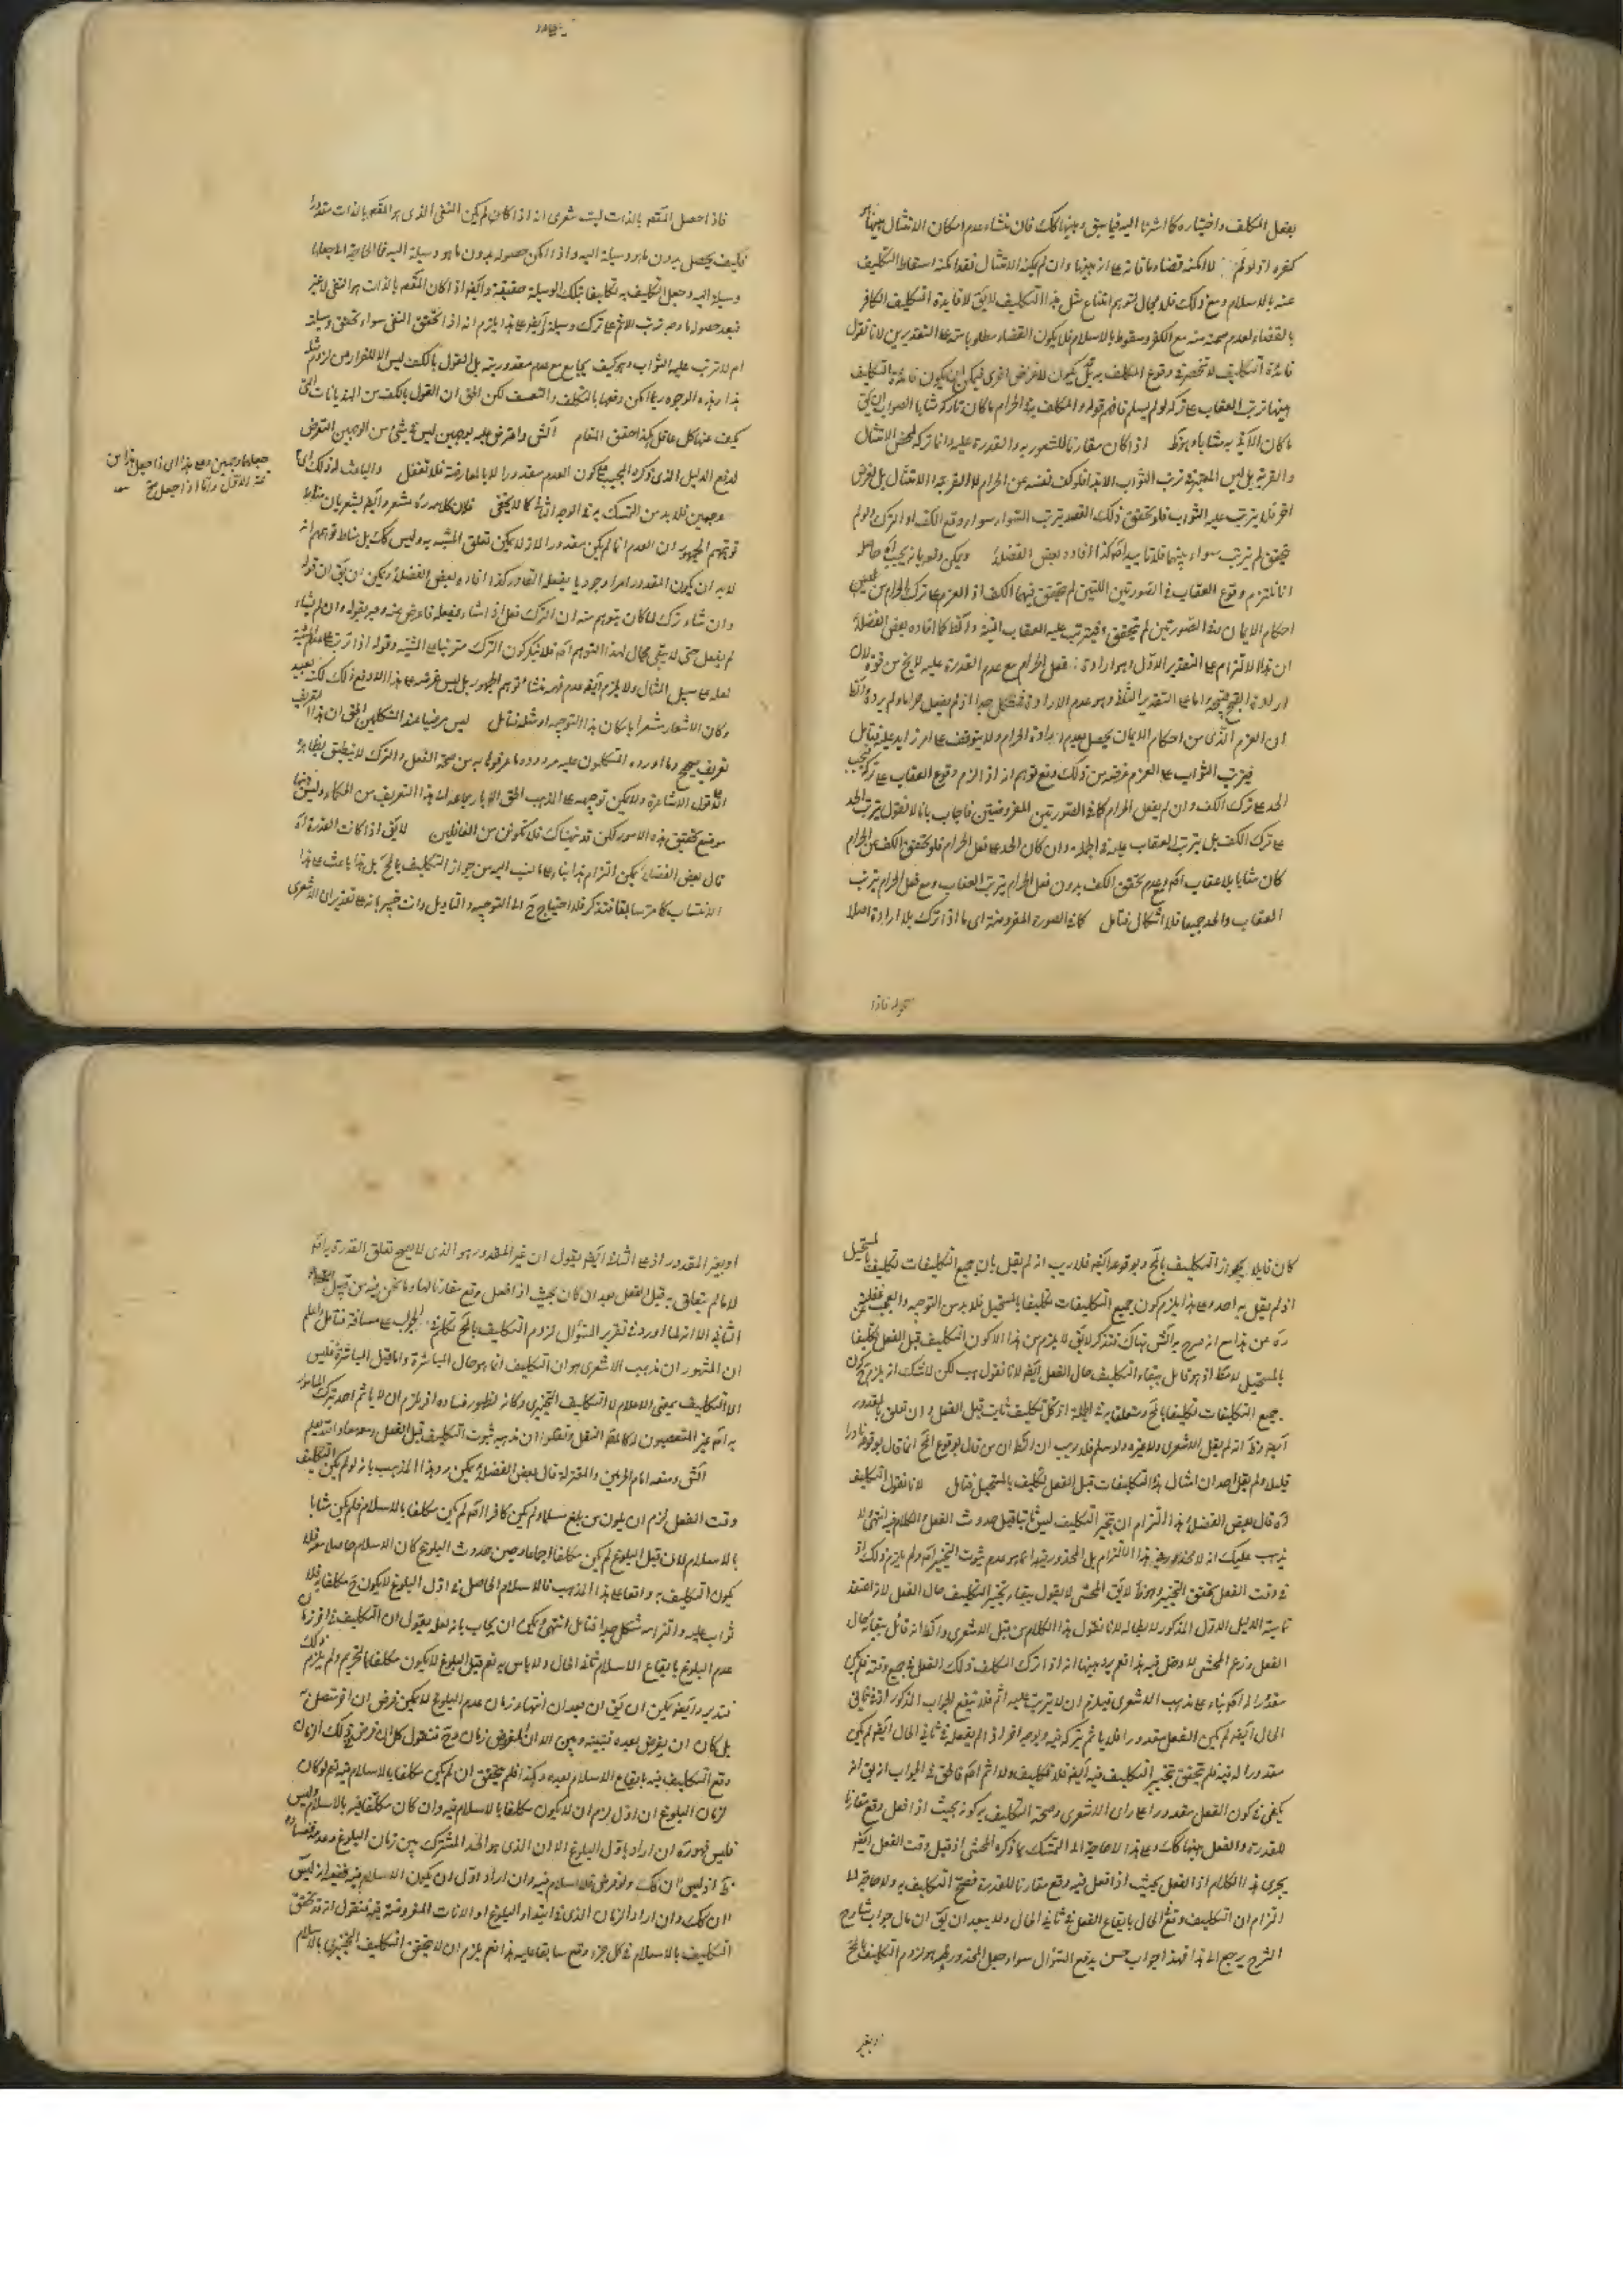 بفعل المكلف واختياره كما اشرنا اليه فيما سبق وبينهما كك فان منشاء عدم امكان الامتثال بينهما
كفره اذ لو لم لامكنه قضاء ما فاته وان لم يمكنه الامتثال فقد امكنه اسقاط التكليف
عنه بالاسلام ومع ذلك فلا مجال لتوهم امتناع مثل هذا التكليف لا يق لا فايدة التكليف الكافر
بالقضاء لعدم صحته منه مع الكفر وسقوط بالاسلام فلا يكون القضاء مطلوبا منه على التقديرين لانا نقول
فائدة التكليف لا تنحصر في وقوع المكلف به بل يكون لاغراض اخرى فيمكن ان يكون فائدة التكليف
بينهما ترتب العقاب على تركه لو لم يسلم فافهم قوله والمكلف الحرام ما كان تاركه مثابا
ما كان الآتي به مثابا اذا كان مقارنا للشعور به والقدرة عليه وانما تركه لمحض الامتثال
والقربة بل ليس المعتبر في ترتب الثواب الا هذا فلو كف نفسه عن الحرام لا للقربة والامتثال بل لغرض
اخر فلا يترتب عليه الثواب فلو تحقق ذلك القصد يترتب الثواب سواء وقع الكف او الترك ولو لم
يتحقق لم يترتب سواء بينهما فلا تاييد كذا افاده بعض الفضلاء ويمكن
انا نلتزم وقوع العقاب في الصورتين اللتين لم يتحقق فيهما الكف اذ العزم على ترك الحرام من
احكام الايمان الصورتين لم يتحقق فيترتب عليه العقاب كما افاده بعض الفضلاء
ان هذا الالتزام على التقدير الاول وهو ارادة فعل الحرام مع عدم القدرة عليه لا يخ من قوة لان
ارادة القبيح قبيحة واما على التقدير وهو عدم الارادة فمشكل جدا اذ لم يفعل حراما ولم يرده
ان العزم الذي من احكام الايمان يحصل بعدم ارادة الحرام ولا يتوقف على امر زايد عليه فتامل
فيترتب الثواب على العزم غرضه من ذلك دفع توهم انه اذا لزم وقوع العقاب على
الحد على ترك الكف وان لم يفعل الحرام كما في الصورتين المفروضتين فاجاب بانا لا نقول بترتب الحد
على ترك الكف بل يترتب العقاب عليه في الجملة وان كان الحد على فعل الحرام فلو تحقق الكف عن الحرام
كان مثابا بلا عقاب ومع عدم تحقق الكف بدون فعل الحرام يترتب العقاب ومع فعل الحرام يترتب
العقاب والحد جميعا فلا اشكال فتامل كما في الصورة المفروضة اى ما اذا ترك بلا ارادة اصلا
فاذا حصل المقصود بالذات ليت شعرى انه اذا كان لم يكن النفى الذى هو المقصود بالذات مقدورا
فكيف يحصل بدون ما هو وسيلة اليه واذا امكن حصوله بدون ما هو وسيلة اليه فما الحاجة الى جعلها
وسيلة اليه وجعل التكليف به تكليفا بتلك الوسيلة حقيقة وايضا اذا كان المقصود بالذات هو النفى لا غير
فبعد حصوله ما وجه ترتب الاثم على ترك وسيلة وايضا على هذا يلزم انه اذا تحقق النفى سواء تحقق وسيلته
ام لا ترتب عليه الثواب وهو كيف يجامع مع عدم مقدوريته بل القول بالكف ليس الا للفرار من لزوم مثله
هذا وهذه الوجوه ربما امكن دفعها بالتكلف والتعسف لكن الحق ان القول بالكف من الهذيانات التى
يكف عنها كل عاقل هكذا حقق المقام واعترض عليه بوجهين ليس شئ من الوجهين التعرض
لدفع الدليل الذى ذكره المجيب على كون العدم مقدورا الا بالمعارضة فلا تغفل
وجهين فلا بد من التمسك به في الوجه الثانى كما لا يخفى فلان كلامه مشعر وايضا يشعر بان مناط
توهم الجمهور ان العدم انما لم يكن مقدورا لانه لا يمكن تعلق المشية به وليس كك بل مناط توهمهم انه
لابد ان يكون المقدور امرا وجوديا يفعله القادر كذا افاده بعض الفضلاء ويمكن ان يق ان قوله
وان شاء ترك لما كان يتوهم منه ان الترك فعل اذ انشاء يفعله فاعرض عنه وغيره بقوله وان لم يشاء
لم يفعل حتى لا يبقى مجال لهذا التوهم فلا ينكر كون الترك مترتبا على المشية وقوله اذا ترتب
لعله على سبيل المثال ولا يلزم ايضا عدم فهمه منشاء توهم الجمهور بل ليس غرضه على هذا الا دفع ذلك لكنه بعيد
وكان الاشعار مشعرا بامكان هذا التوجيه او مثله فتامل ليس مرضيا عند المتكلمين الحق ان هذا التعريف
تعريف صحيح وما اورده المتكلمون عليه مردود وما عرفوها به من صحة الفعل والترك لا ينطبق بظاهره
الا على قول الاشاعرة ولا يمكن توجيهه على المذهب الحق الا بارجاعه الى هذا التعريف من الحكماء وليس هنا
موضع تحقيق هذه الامور لكن قد نبهناك فلا تكونن من الغافلين لا يق اذا كانت القدرة
قال بعض الفضلاء يمكن التزام هذا بناء على ما نسب اليه من جواز التكليف بالمح بل هذا باعث على هذا
الانتساب كما مر سابقا فتذكر فلا احتياج الى التوجيه والتاويل وانت خبير بانه على تقدير ان الاشعرى
جعلها وجهين وعلى هذا اى اذا جعل هذا من
تتمة الاول واما اذا جعل
قوله فاذا
كان قايلا بجواز التكليف بالمح وبوقوعه ايضا فلا ريب انه لم يقل بان جميع التكليفات تكليف بالمستحيل
اذ لم يقل به احد وعلى هذا يلزم كون جميع التكليفات تكليفا بالمستحيل فلا بد من التوجيه والعجب
عن هذا مع انه صرح به هناك فتذكر لا يق لا يلزم من هذا الا كون التكليف قبل الفعل تكليفا
بالمستحيل لا مط اذ هو قايل ببقاء التكليف حال الفعل ايضا لانا نقول هب لكن لا شك انه يلزم كون
جميع التكليفات تكليفا بالمح ومتعلقا به في الجملة اذ كل تكليف ثابت قبل الفعل وان تعلق بالمقدور
ايضا انه لم يقل الاشعرى ولا غيره ولو سلم فلا ريب ان من قال بوقوع المح انما قال بوقوعه نادرا
قليلا ولم يقل احد ان امثال هذه التكليفات قبل الفعل تكليف بالمستحيل فتامل لانا نقول التكليف
قال بعض الفضلاء هذا التزام ان تنجيز التكليف ليس ثابتا قبل حدوث الفعل والكلام فيه انتهى ولا
يذهب عليك انه لا محذور في هذا الالتزام بل المحذور فيه انما هو عدم ثبوت التنجيز ولم يلزم ذلك اذ
في وقت الفعل يتحقق التنجيز لا يق المحشى لا يقول ببقاء تنجيز التكليف حال الفعل لانه اعتقد
تمامية الدليل الاول المذكور لابطاله لانا نقول هذا الكلام من قبل الاشعرى قائل ببقائه حال
الفعل وزعم المحشى لا دخل فيه هذا نعم يرد بينهما انه اذا ترك المكلف ذلك الفعل في جميع وقته فلم يكن
مقدورا له بناء على مذهب الاشعرى فيلزم ان لا يترتب عليه اثم فلا ينفع الجواب المذكور اذ في ثانى
الحال ايضا لم يكن الفعل مقدورا فلا ياثم بتركه فيه وبوجه اخر اذ لم يفعله في ثانى الحال ايضا لم يكن
مقدورا له فيه فلم يتحقق تنجيز التكليف فيه ايضا فلا تكليف ولا اثم فالحق في الجواب ان يق انه
يكفى في كون الفعل مقدورا على راى الاشعرى وصحة التكليف به كونه بحيث اذا فعل وقع مقارنا
للقدرة والفعل بينهما كك وعلى هذا لا حاجة الى التمسك بما ذكره المحشى اذ قبل وقت الفعل ايضا
يجرى هذا الكلام اذ الفعل بحيث اذا فعل فيه وقع مقارنا للقدرة فصح التكليف به ولا حاجة الى
التزام ان التكليف وقع في الحال بايقاع الفعل في ثانى الحال ولا يبعد ان يق ان مال جواب شارح
الشرح يرجع الى هذا فهذا جواب حسن يدفع السؤال سواء جعل المحذور فيه هو لزوم التكليف بالمح
او بغير المقدور اذ على الثانى ايضا يقول ان غير المقدور هو الذى لا يصح تعلق القدرة به
لا ما لم يتعلق به قبل الفعل بعد ان كان بحيث اذا فعل وقع مقارنا لها وما نحن فيه من قبيل
الثانى الا انه لما اورد في تقرير السؤال لزوم التكليف بالمح الجواب على مساقه فتامل واعلم
ان المشهور ان مذهب الاشعرى هو ان التكليف انما هو حال المباشرة واما قبل المباشرة فليس
الا التكليف بمعنى الاعلام لا التكليف التنجيزى وكانه لظهور فساده اذ يلزم ان لا ياثم احد بترك المامور
به غير المتعصبون النقل ونقلوا ان مذهبه ثبوت التكليف قبل الفعل ومعه
ومنعه امام الحرمين والمعتزلة قال بعض الفضلاء يمكن رد هذا المذهب بانه لو لم يكن التكليف
وقت الفعل لزم ان يكون من بلغ مسلما ولم يكن كافرا لم يكن مكلفا بالاسلام فلم يكن مثابا
بالاسلام لان قبل البلوغ لم يكن مكلفا اجماعا وحين حدوث البلوغ كان الاسلام حاصلا معه فلا
يكون التكليف به واقعا على هذا المذهب فالاسلام الحاصل في اول البلوغ لا يكون مكلفا به فلا
ثواب عليه والتزامه مشكل جدا فتامل انتهى ويمكن ان يجاب بانه لعله يقول ان التكليف في اخر زمان
عدم البلوغ بايقاع الاسلام في ثانى الحال ولا باس به نعم قبل البلوغ لا يكون مكلفا بالتحريم ولم يلزم ذلك
فتدبر وايضا يمكن ان يق ان بعد ان انتهاء زمان عدم البلوغ لا يمكن فرض ان اخر متصل به
بل كان ان يفرض بعده فبينه وبين الآن المفروض زمان وح فنقول كل ان فرض في ذلك الزمان
وقع التكليف فيه بايقاع الاسلام بعده وهكذا فلم يتحقق ان لم يكن مكلفا بالاسلام فيه نعم لو كان
لزمان البلوغ ان اول لزم ان لا يكون مكلفا بالاسلام فيه وان كان مكلفا فيه بالاسلام وليس
فليس ان اراد باول البلوغ الان الذى هو الحد المشترك بين زمان البلوغ وعدمه
اذ ليس ان كك ولو فرض فلا اسلام فيه وان اراد اول ان يكون الاسلام فيه ففيه انه ليس
ان كك وان اراد الزمان الذى في ابتداء البلوغ او الآنات المفروضة فيه فنقول انه قد تحقق
التكليف بالاسلام في كل جزء وقع سابقا عليه هذا نعم يلزم ان لا يتحقق التكليف التنجيزى بالاسلام
او بغير